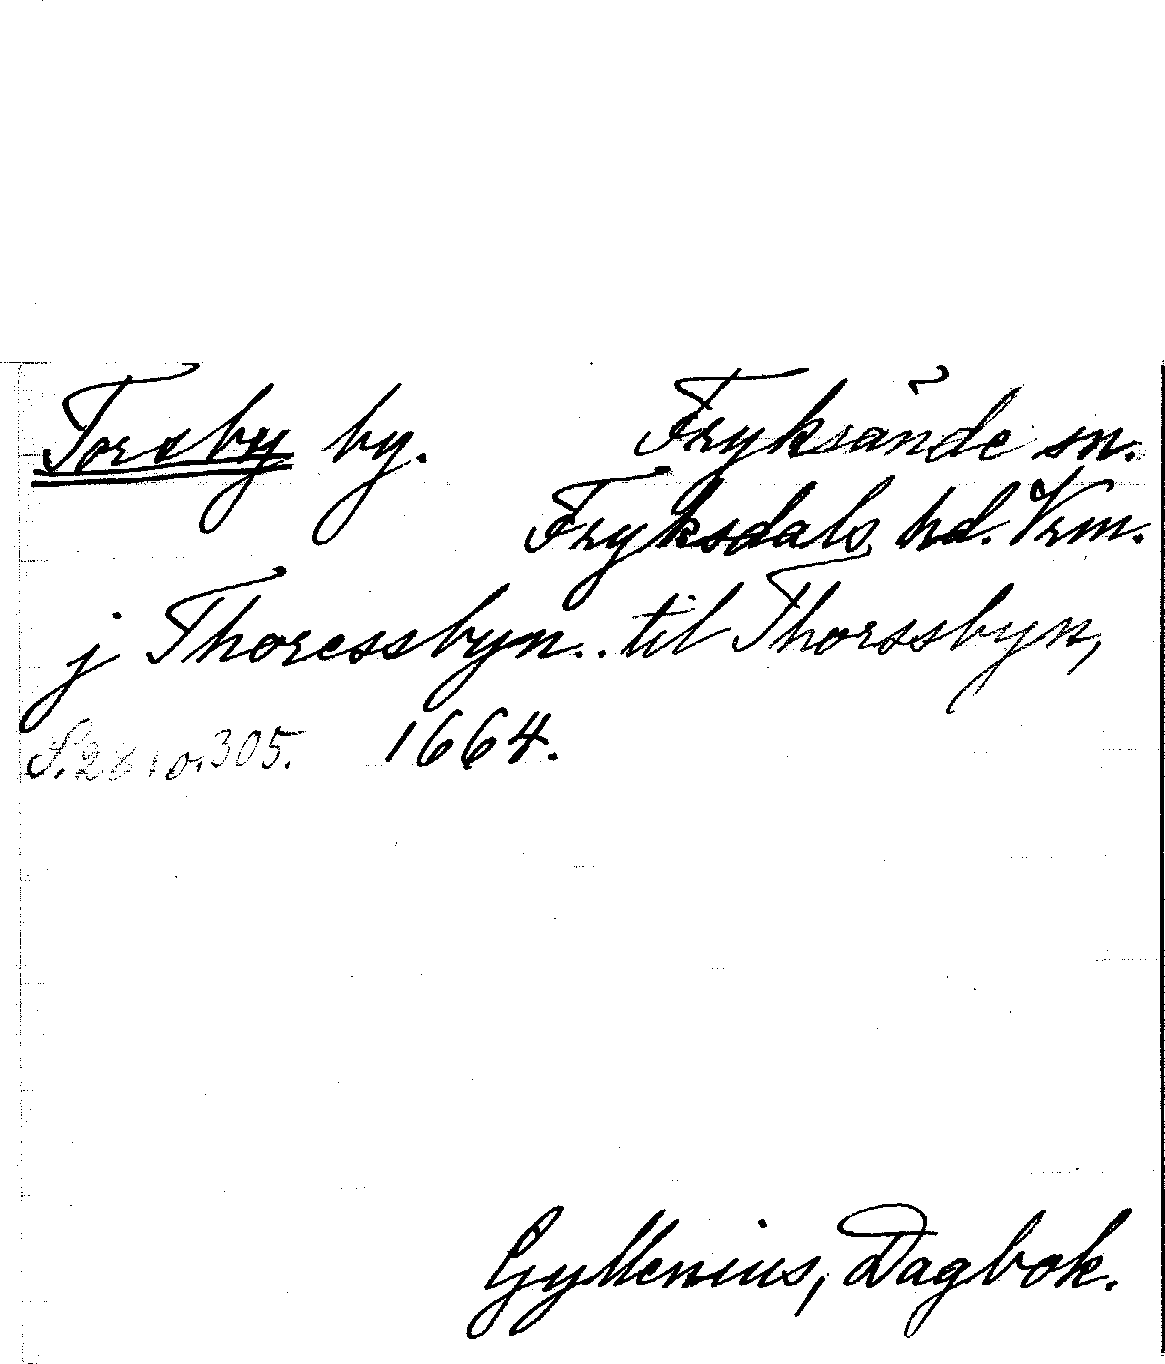 Torsby by. Fryksände sn.
Fryksdals hd. Vrm.
j Thoressbyn.. til Thorssbyn,
S. 281 o. 305. 1664.
Gyllenius, Dagbok.